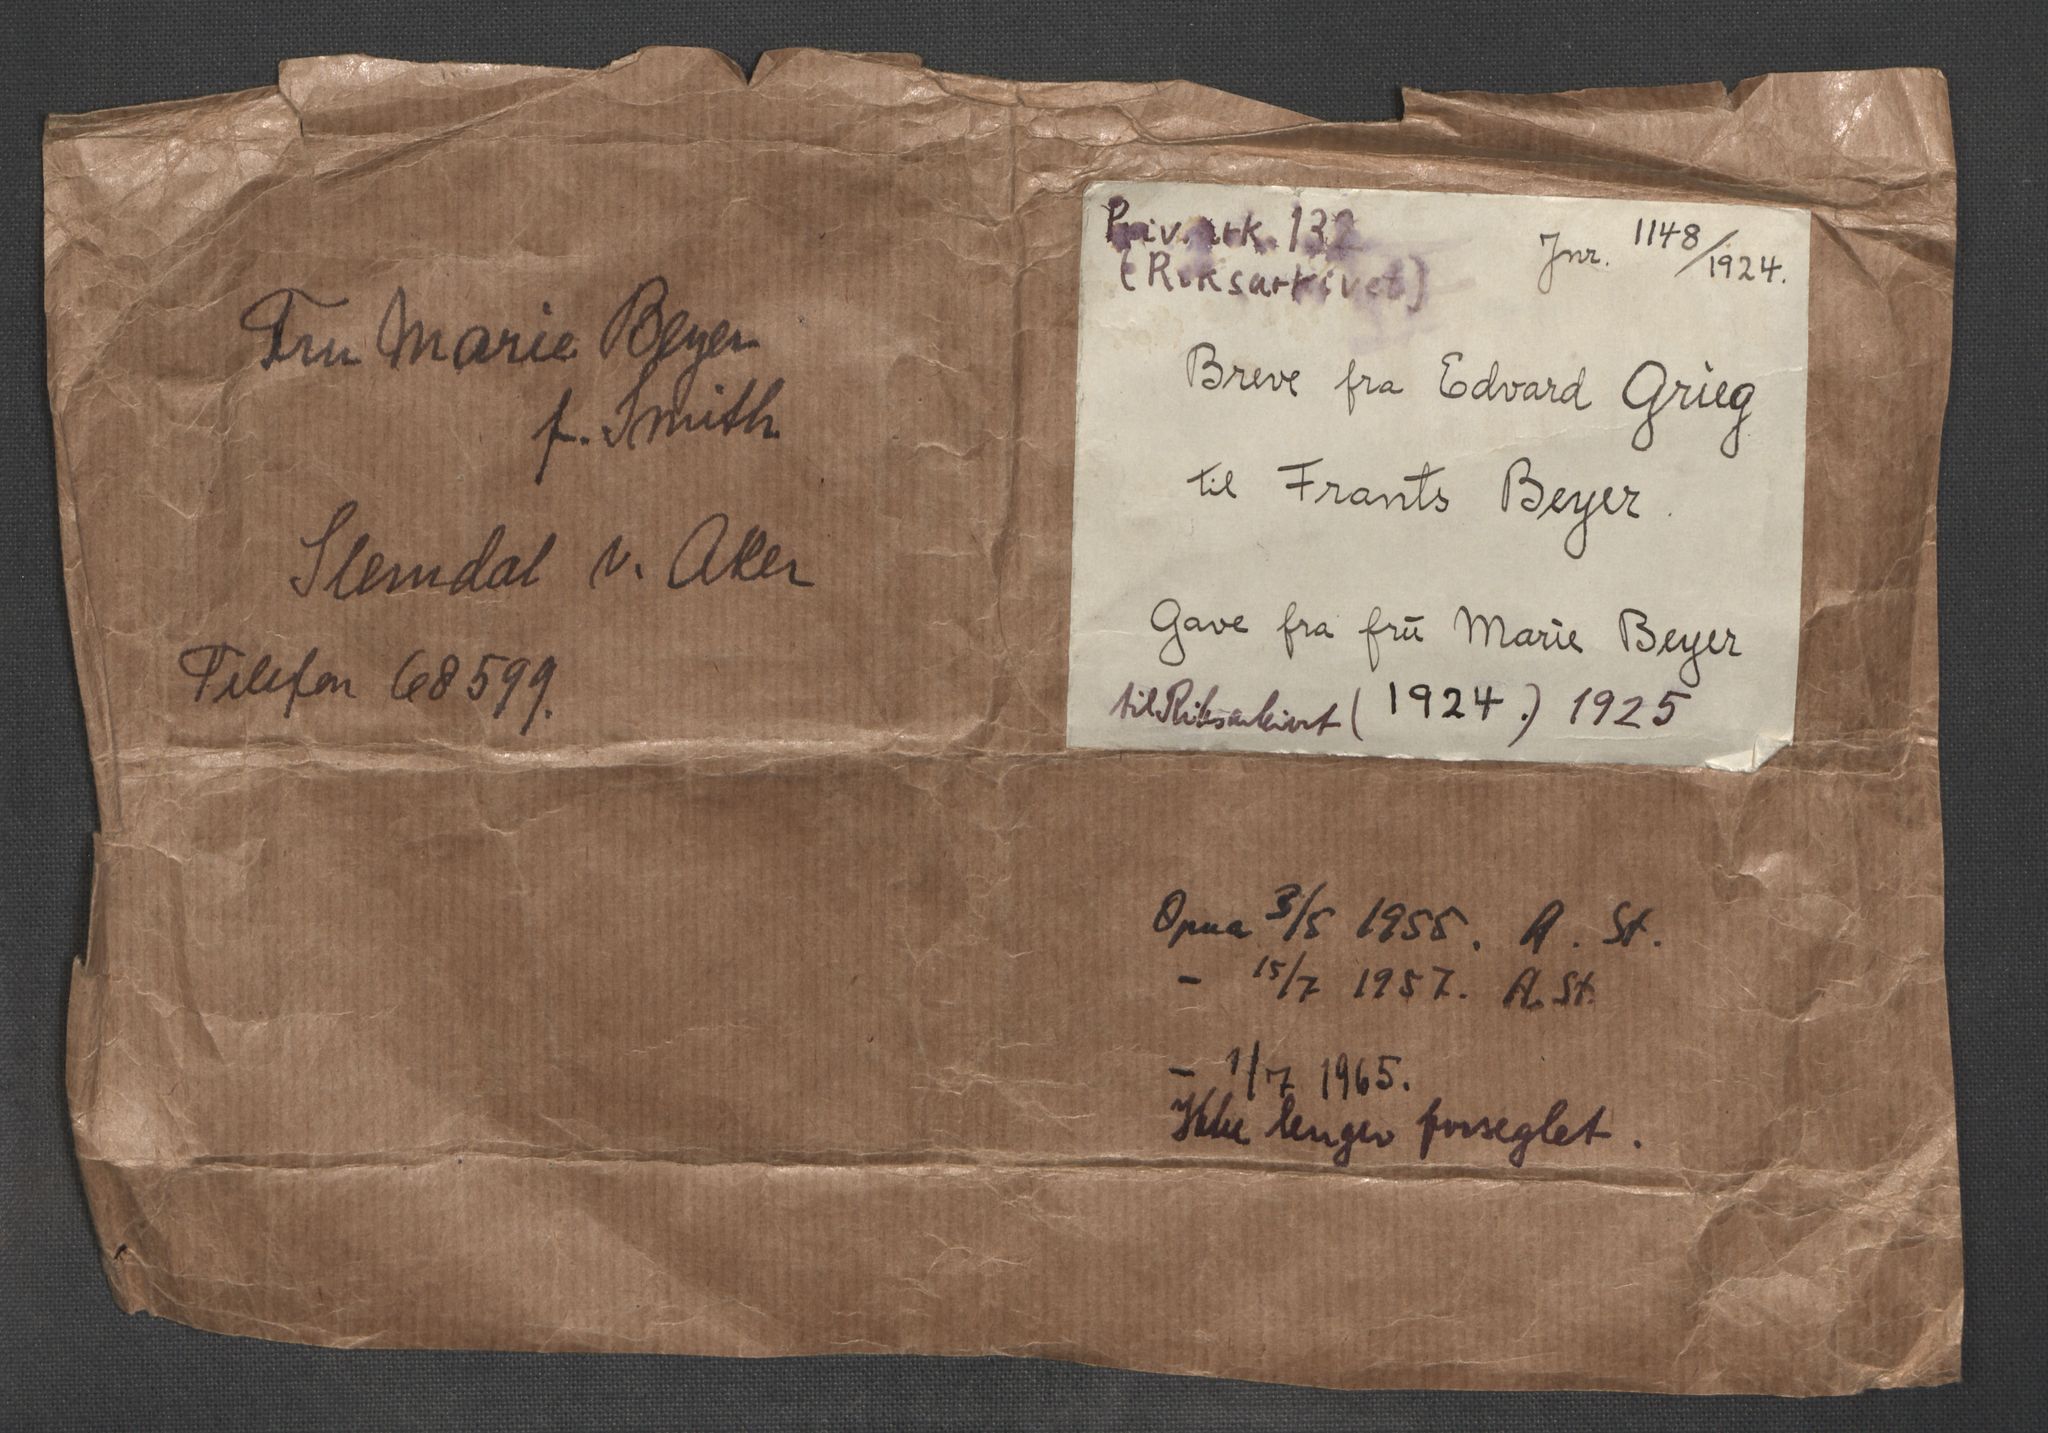 Fru Marie Beyer
f. Smith
Slemdal v. Aker
Telefon 68599.
Priv.ark. 132
(Riksarkivet)
Jnr. 1148/1924.
Breve fra Edvard Grieg
til Frants Beyer.
Gave fra frū Marie Beyer
til Riksarkivet (1924.) 1925
Opna 3/5 1955. A. St.
- 15/7 1957. A. St.
- 1/7 1965.
Ikke lenger forseglet.